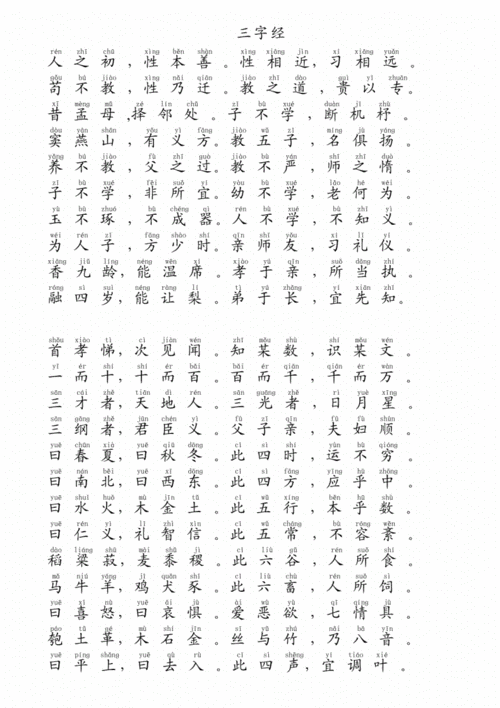 三字经
rén zhī chū xìng běn shàn xìng xiāng jìn xí xiāng yuǎn
人之初，性本善。性相近，习相远。
gǒu bú jiào xìng nǎi qiān jiào zhī dào guì yǐ zhuān
苟不教，性乃迁。教之道，贵以专。
xī mèng mǔ zé lín chù zǐ bù xué duàn jī zhù
昔孟母，择邻处。子不学，断机杼。
dòu yān shān yǒu yì fāng jiào wǔ zǐ míng jù yáng
窦燕山，有义方。教五子，名俱扬。
yǎng bú jiào fù zhī guò jiào bù yán shī zhī duò
养不教，父之过。教不严，师之惰。
zǐ bù xué fēi suǒ yí yòu bù xué lǎo hé wéi
子不学，非所宜。幼不学，老何为。
yù bù zhuó bù chéng qì rén bù xué bù zhī yì
玉不琢，不成器。人不学，不知义。
wéi rén zǐ fāng shào shí qīn shī yǒu xí lǐ yí
为人子，方少时。亲师友，习礼仪。
xiāng jiǔ líng néng wēn xí xiào yú qīn suǒ dāng zhí
香九龄，能温席。孝于亲，所当执。
róng sì suì néng ràng lí dì yú zhǎng yí xiān zhī
融四岁，能让梨。弟于长，宜先知。
shǒu xiào tì cì jiàn wén zhī mǒu shù shí mǒu wén
首孝悌，次见闻。知某数，识某文。
yī ér shí shí ér bǎi bǎi ér qiān qiān ér wàn
一而十，十而百。百而千，千而万。
sān cái zhě tiān dì rén sān guāng zhě rì yuè xīng
三才者，天地人。三光者，日月星。
sān gāng zhě jūn chén yì fù zǐ qīn fū fù shùn
三纲者，君臣义。父子亲，夫妇顺。
yuē chūn xià yuē qiū dōng cǐ sì shí yùn bù qióng
曰春夏，曰秋冬。此四时，运不穷。
yuē nán běi yuē xī dōng cǐ sì fāng yìng hū zhōng
曰南北，曰西东。此四方，应乎中。
yuē shuǐ huǒ mù jīn tǔ cǐ wǔ xíng běn hū shù
曰水火，木金土。此五行，本乎数。
yuē rén yì lǐ zhì xìn cǐ wǔ cháng bù róng wěn
曰仁义，礼智信。此五常，不容紊。
dào liáng shū mài shǔ jì cǐ liù gǔ rén suǒ shí
稻粱菽，麦黍稷。此六谷，人所食。
mǎ niú yáng jī quǎn shǐ cǐ liù chù rén suǒ sì
马牛羊，鸡犬豕。此六畜，人所饲。
yuē xǐ nù yuē āi jù ài wù yù qī qíng jù
曰喜怒，曰哀惧。爱恶欲，七情具。
páo tǔ gé mù shí jīn sī yǔ zhú nǎi bā yīn
匏土革，木石金。丝与竹，乃八音。
yuē píng shàng yuē qù rù cǐ sì shēng yí tiáo xié
曰平上，曰去入。此四声，宜调叶。